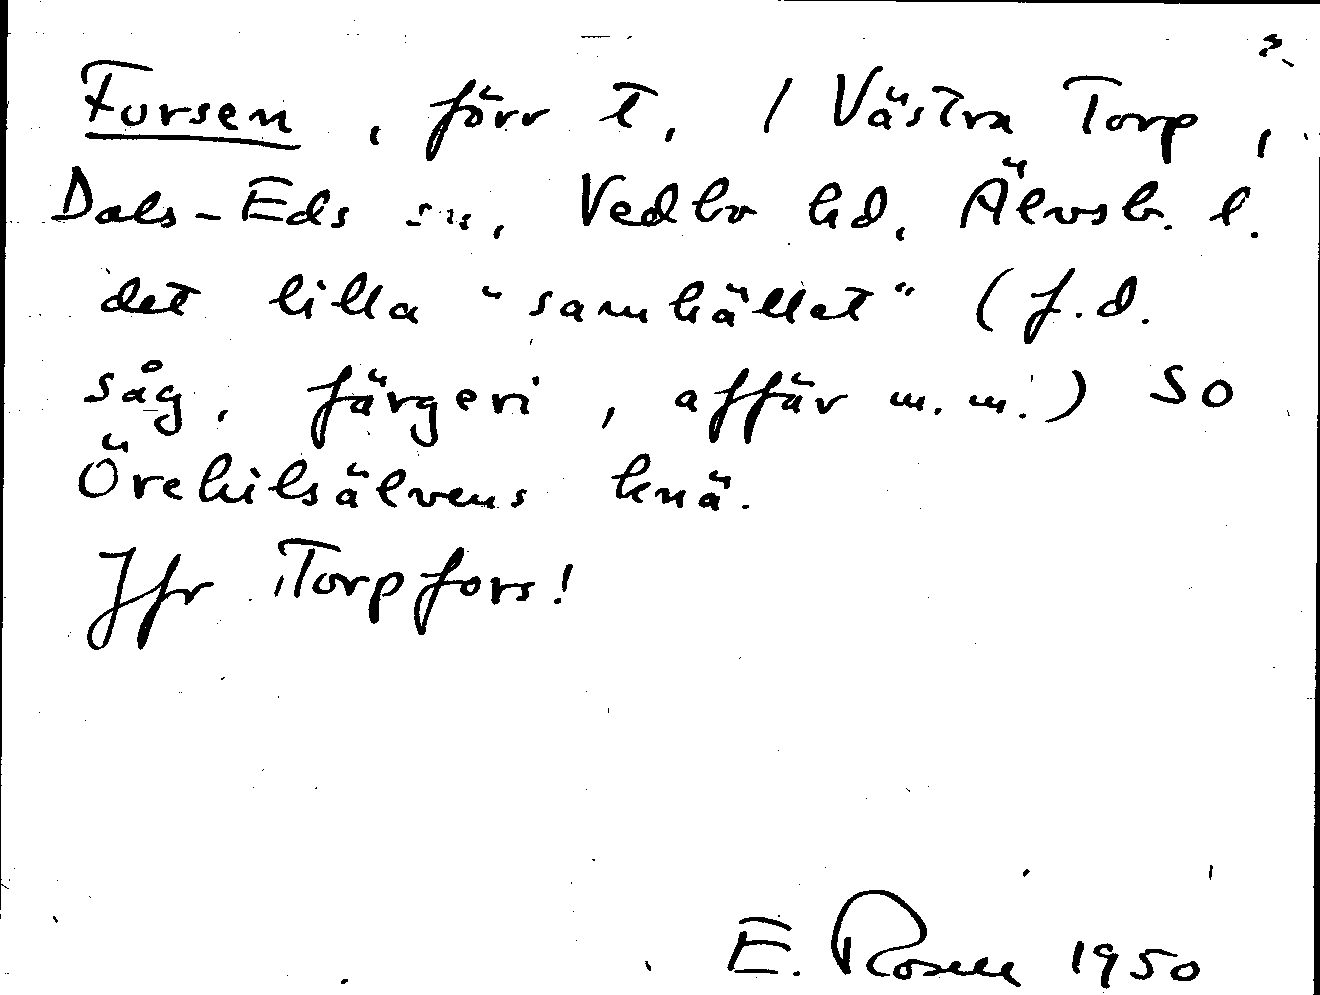 Forsen, förr t, / Västra Torp,
Dals-Eds sn, Vedbo hd, Älvsb. l.
det lilla "samhället" (f.d.
såg, färgeri, affär m.m.) SO
Örekilsälvens knä.
Jfr Torpfors!
E. Rosell 1950